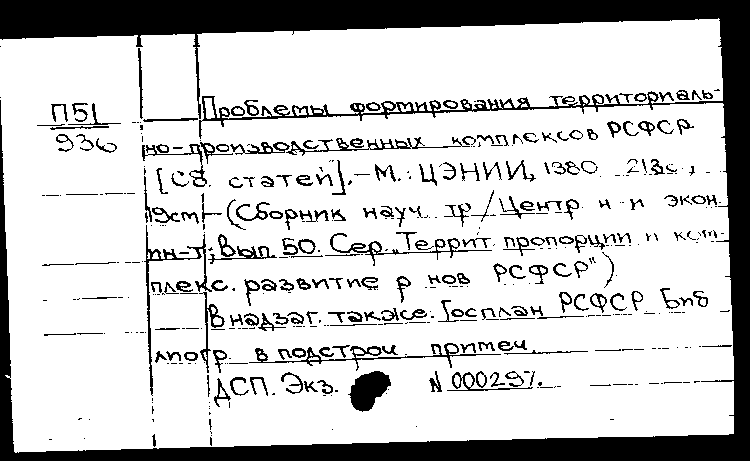 П51
936
Проблемы формирования территориаль-
но-производственных комплексов РСФСР
[Сб. статей].-М.: ЦЭНИИ, 1980 213с.,
19см-(Сборник науч. тр/Центр н-и экон.
ин-т; Вып. 50. Сер. „Террит. пропорции и ком-
плекс. развитие р нов РСФСР")
В надзаг. также: Госплан РСФСР Биб
лиогр. в подстроч примеч.
ДСП. Экз. N 000297.